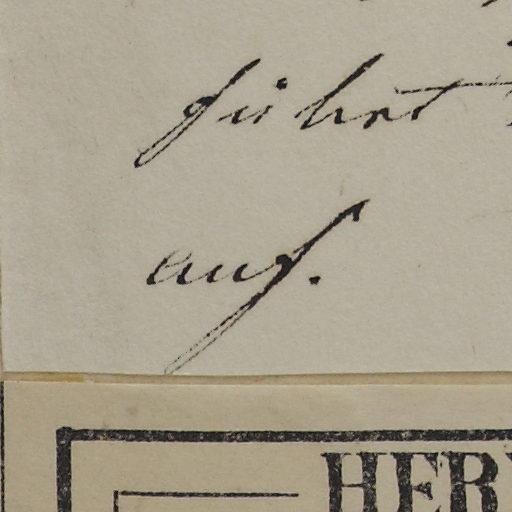 führt
auf.
HER